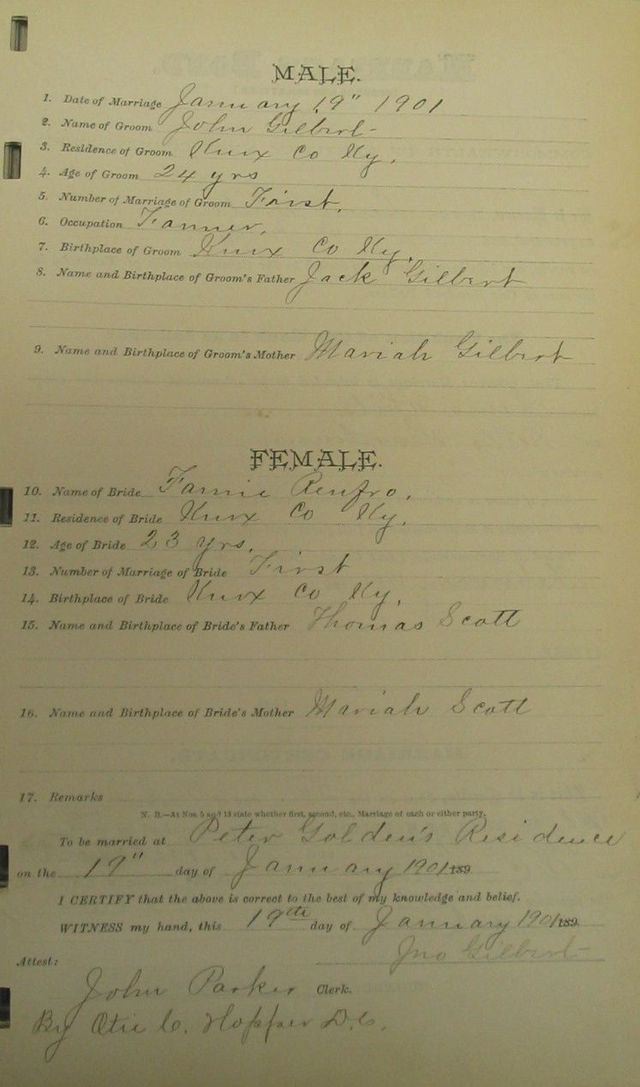 MALE.
1. Date of Marriage January 19" 1901
2. Name of Groom John Gilbert
3. Residence of Groom Knox Co Ky.
4. Age of Groom 24 yrs
5. Number of Marriage of Groom First.
6. Occupation Farmer.
7. Birthplace of Groom Knox Co Ky.
8. Name and Birthplace of Groom's Father Jack Gilbert
9. Name and Birthplace of Groom's Mother Mariah Gilbert
FEMALE.
10. Name of Bride Fannie Renfro.
11. Residence of Bride Knox Co Ky.
12. Age of Bride 23 yrs.
13. Number of Marriage of Bride First
14. Birthplace of Bride Knox Co Ky.
15. Name and Birthplace of Bride's Father Thomas Scott
16. Name and Birthplace of Bride's Mother Mariah Scott
17. Remarks
N. B.—At Nos. 5 and 13 state whether first, second, etc., Marriage of each or either party.
To be married at Peter Golden's Residence
on the 19" day of January 1901 189
I CERTIFY that the above is correct to the best of my knowledge and belief.
WITNESS my hand, this 19th day of January 1901 189
Jno Gilbert
Attest:
John Parker Clerk.
By Otis C. Hopper D.C.